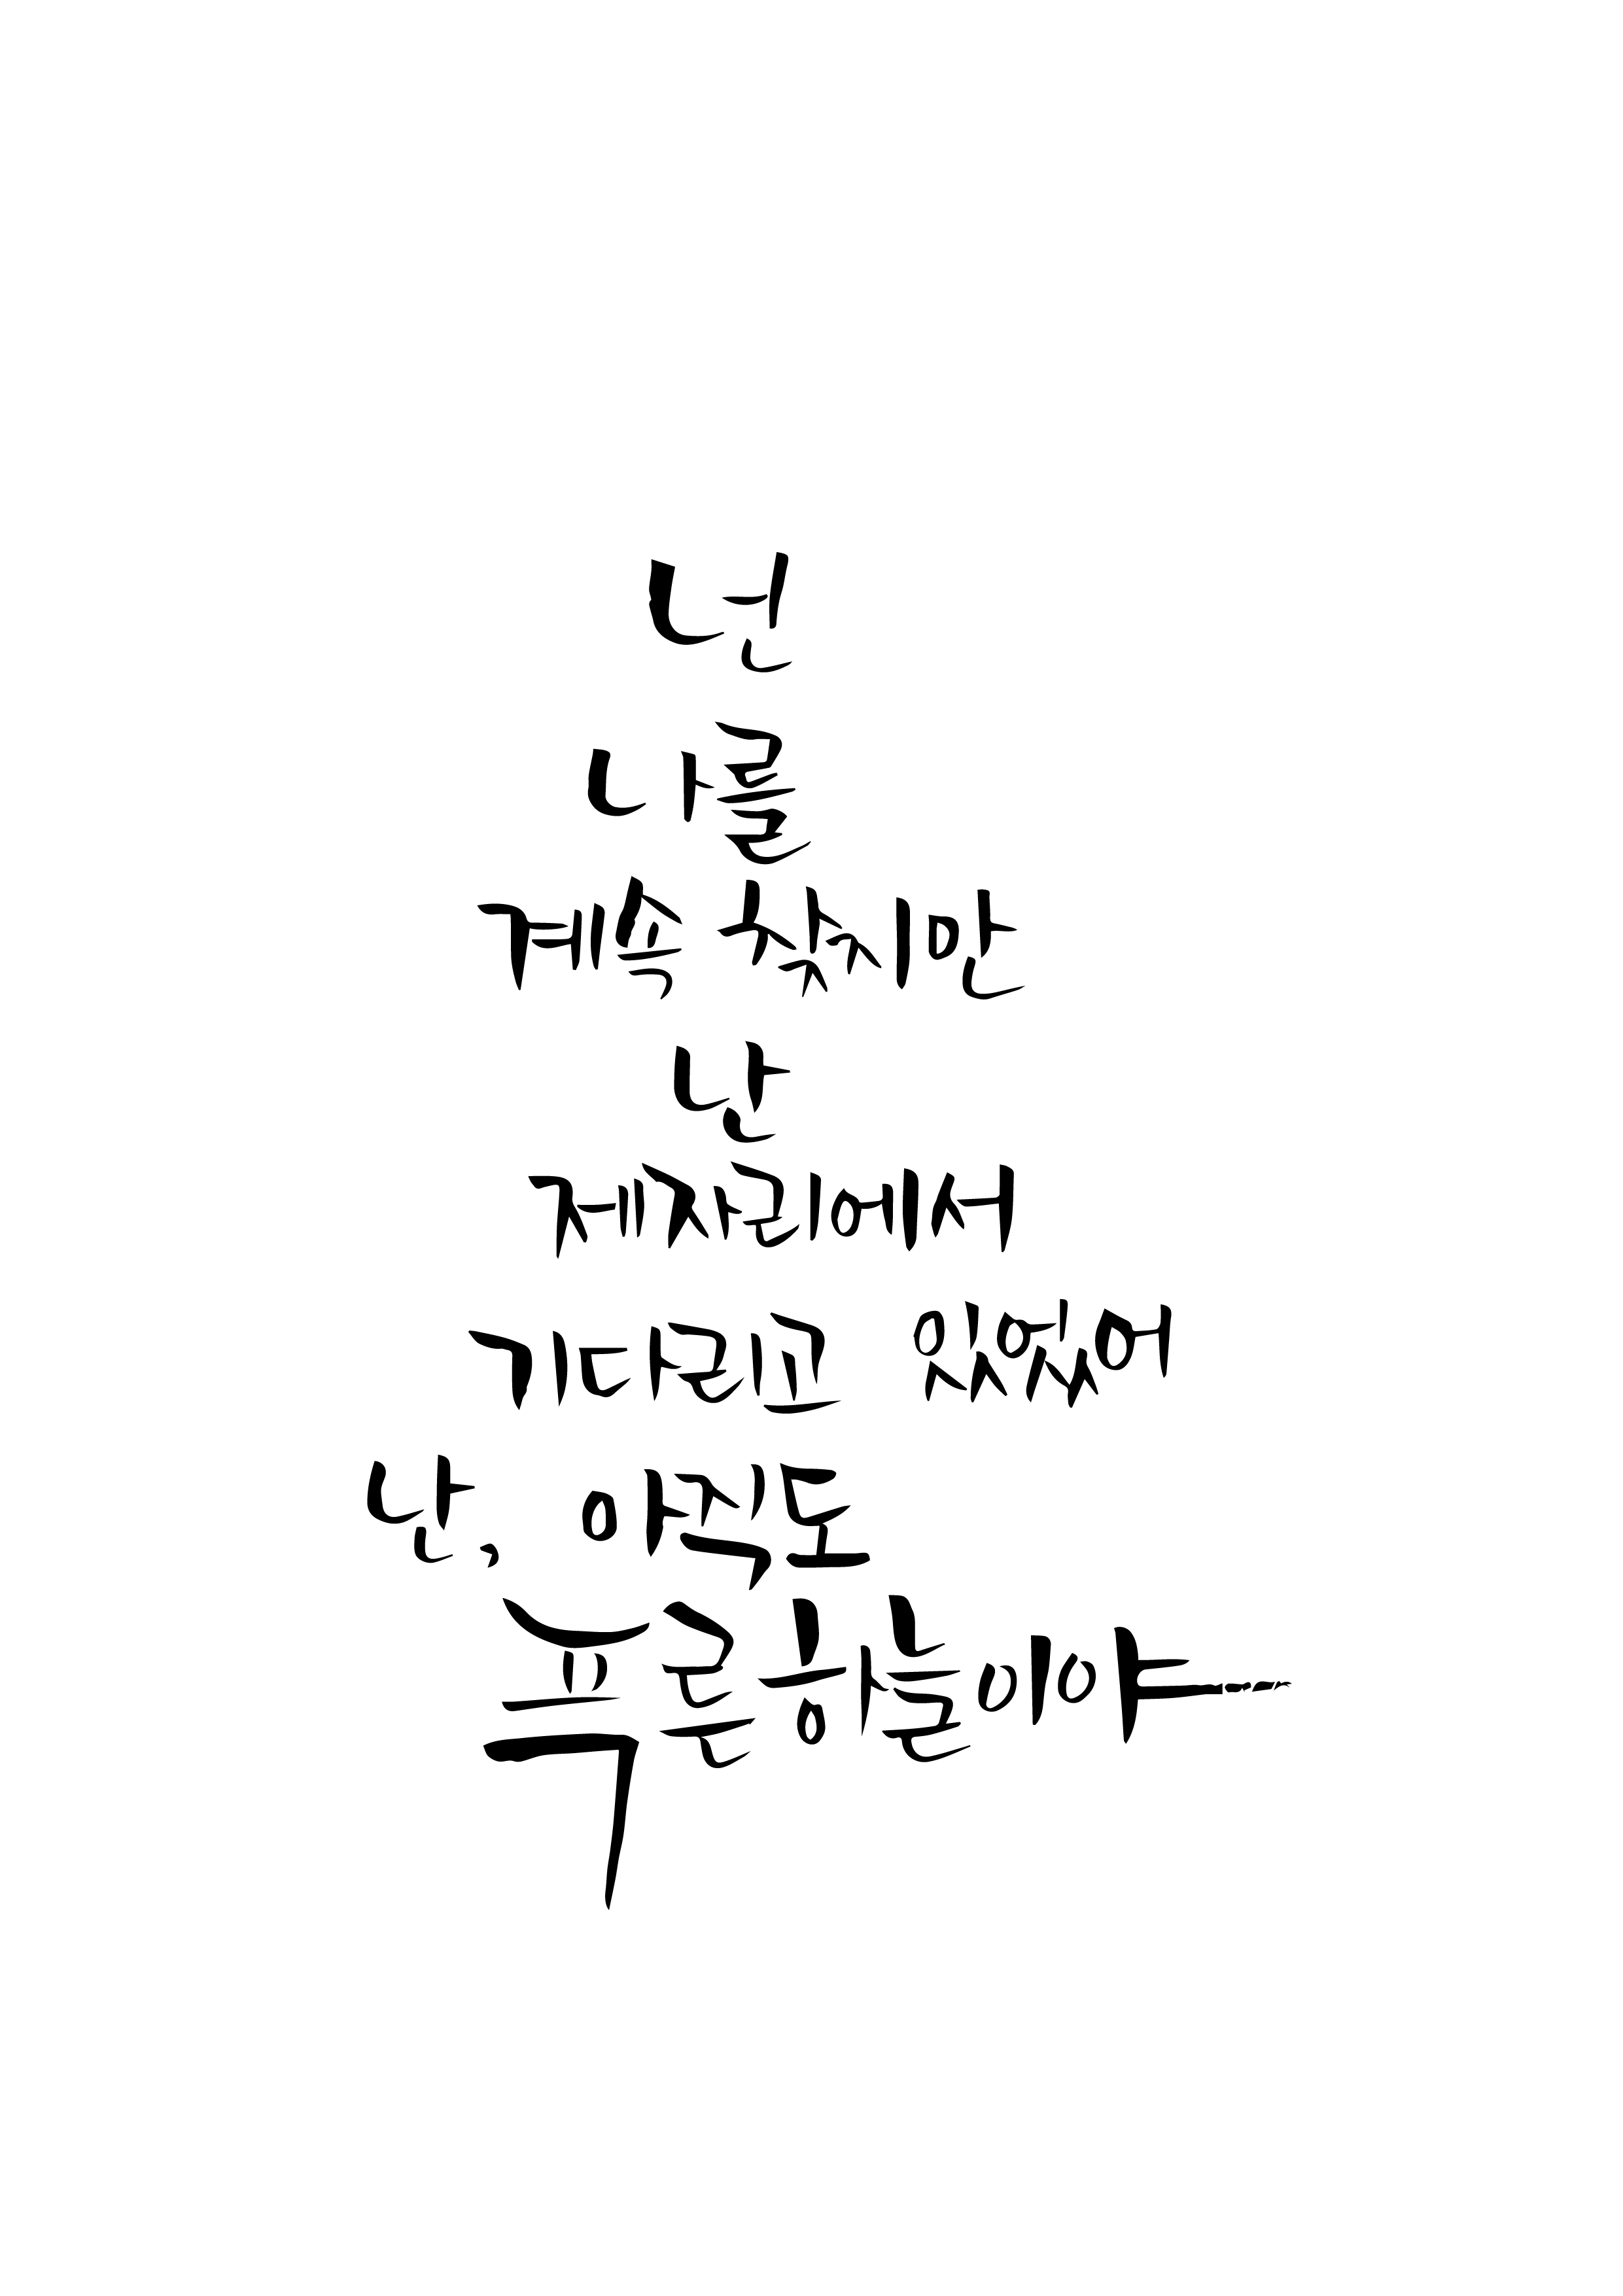 넌
나를
계속 찾지만
난
제자리에서
기다리고 있었어
난, 아직도
푸른 하늘이야